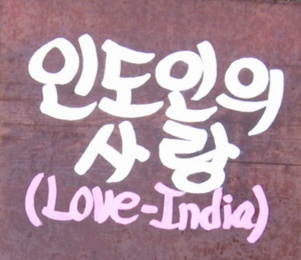 인도인의
사랑
(Love-India)